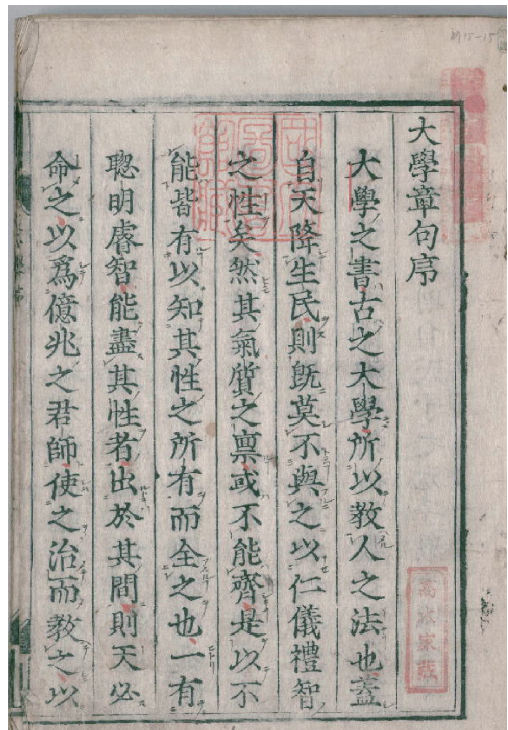 大學章句序
大學之書古之大學所以教人之法也蓋
自天降生民則既莫不與之以仁儀禮智
之性矣然其氣質之禀或不能齊是以不
能皆有以知其性之所有而全之也一有
聰明睿智能盡其性者出於其間則天必
命之以爲億兆之君師使之治而教之以